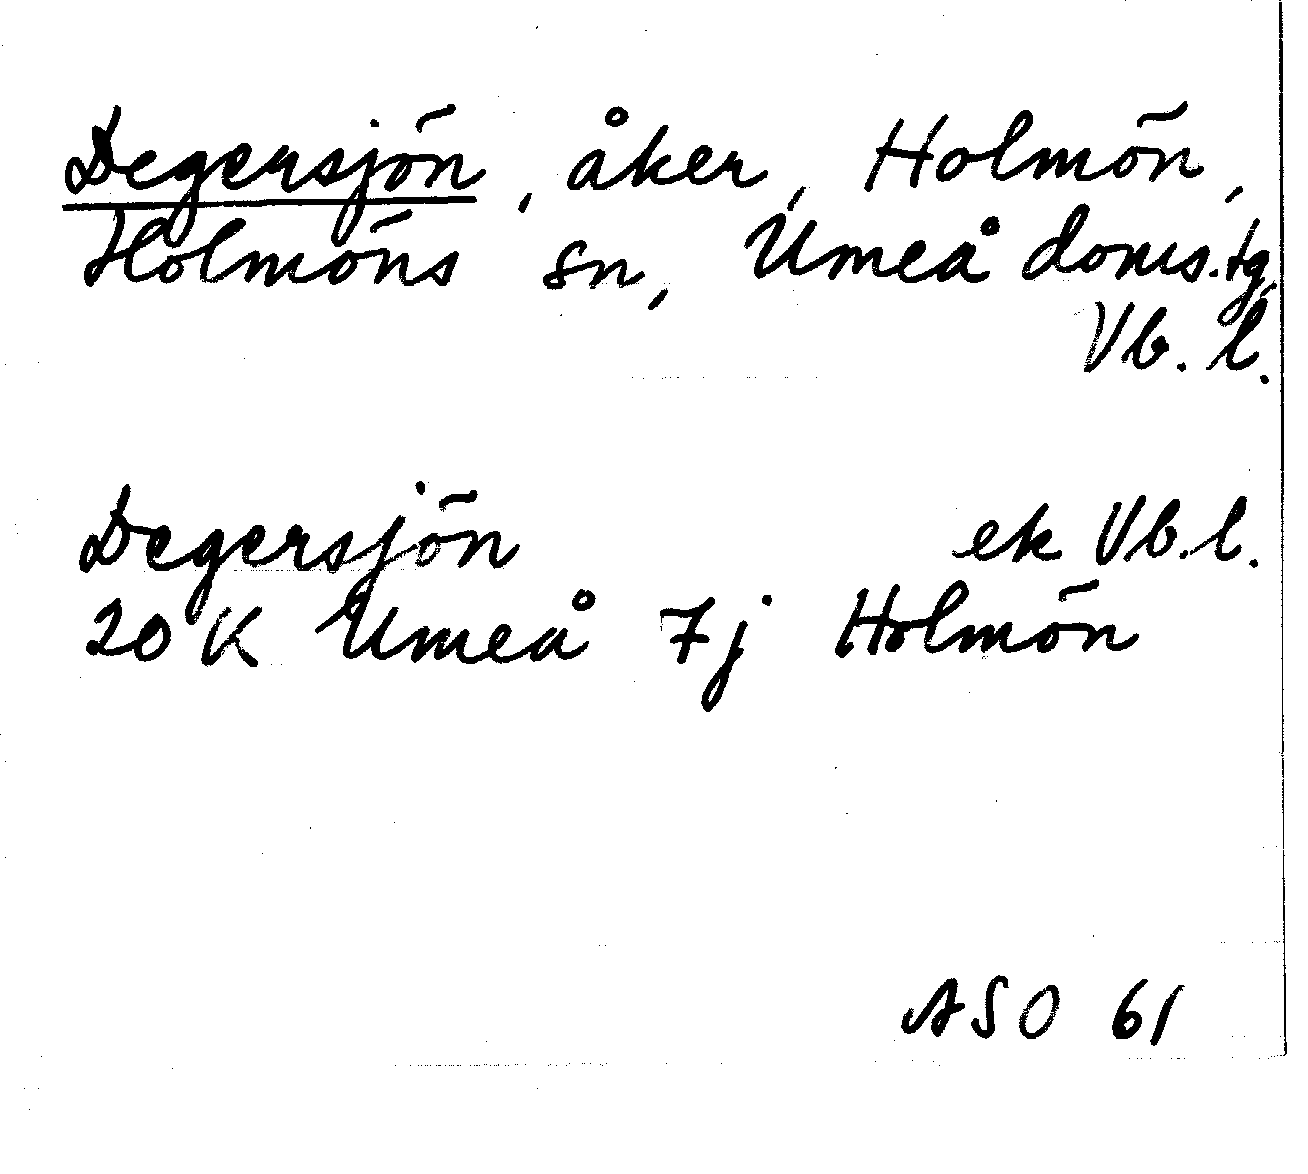 Degersjön, åker, Holmön,
Holmöns sn, Umeå doms.tg,
Vb. l.
Degersjön ek Vb.l.
20 K Umeå 7j Holmön
ASO 61